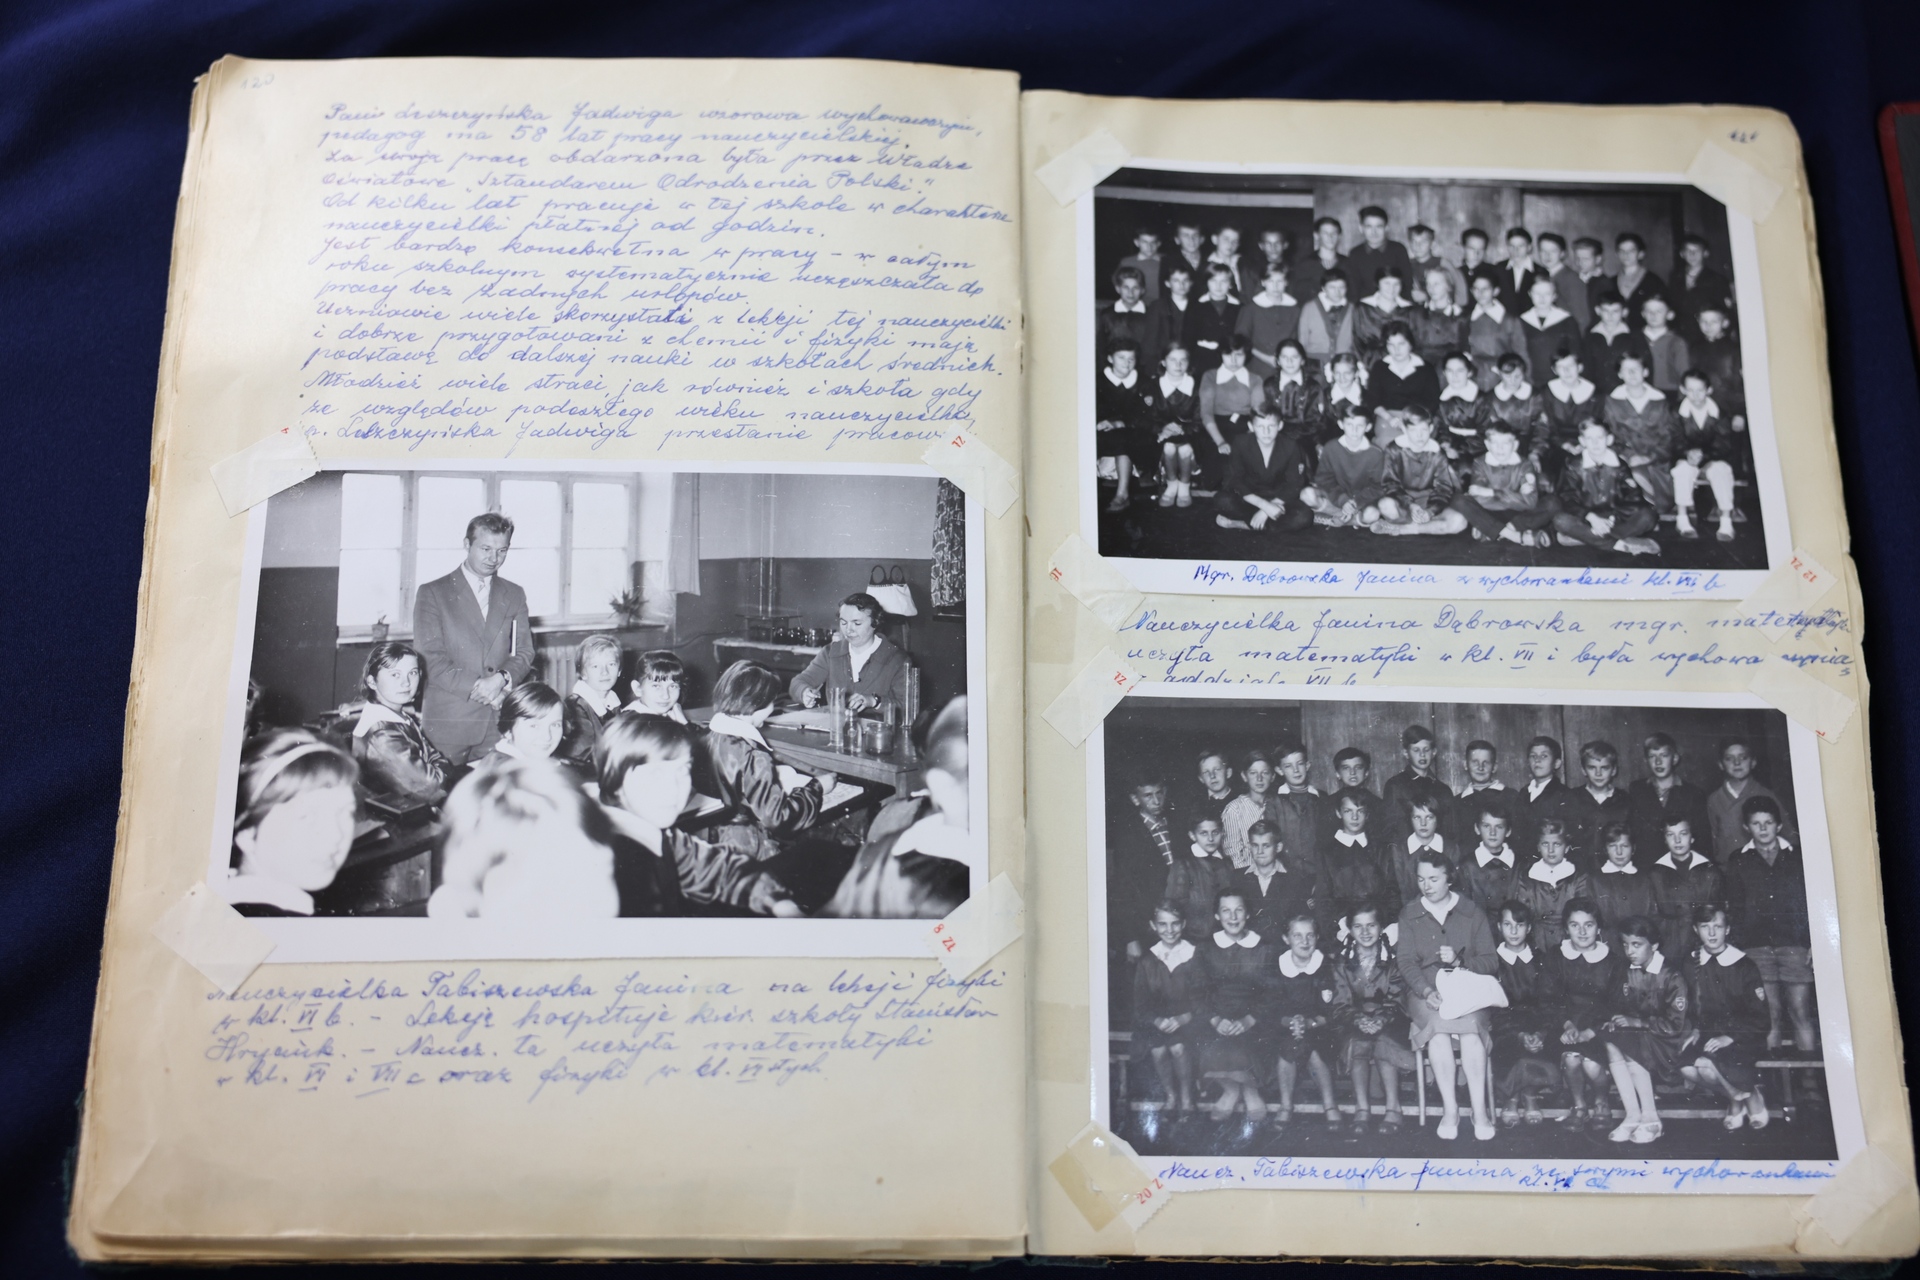 120
Pani Leszczyńska Jadwiga wzorowa wychowawczyni,
pedagog ma 58 lat pracy nauczycielskiej.
Za swoją pracę obdarzona była przez Władze
Oświatowe „Sztandarem Odrodzenia Polski."
Od kilku lat pracuje w tej szkole w charakterze
nauczycielki płatnej od godzin.
Jest bardzo konsekwetna w pracy - w całym
roku szkolnym systematycznie uczęszczała do
pracy bez żadnych urlopów.
Uczniowie wiele skorzystali z lekcji tej nauczycielki
i dobrze przygotowani z chemii i fizyki mają
podstawę do dalszej nauki w szkołach średnich.
Młodzież wiele straci, jak również i szkoła gdy
ze względów podeszłego wieku nauczycielka,
p. Leszczyńska Jadwiga przestanie pracow
Nauczycielka Tabiszewska Janina na lekcji fizyki
w kl. VI b. - Lekcję hospituje kier. szkoły Stanisław
- Naucz. ta uczyła matematyki
w kl. VI i VII c oraz fizyki w kl. VI stych
121
Mgr. Dąbrowska Janina z wychowankami kl. VII b
Nauczycielka Janina Dąbrowska mgr.
uczyła matematyki w kl. VII i była wychowawczynią
oddziału VII b
Naucz. Tabiszewska Janina ze swymi wychowankami
kl.
12 ZŁ
ZŁ
8 ZŁ
20 Z